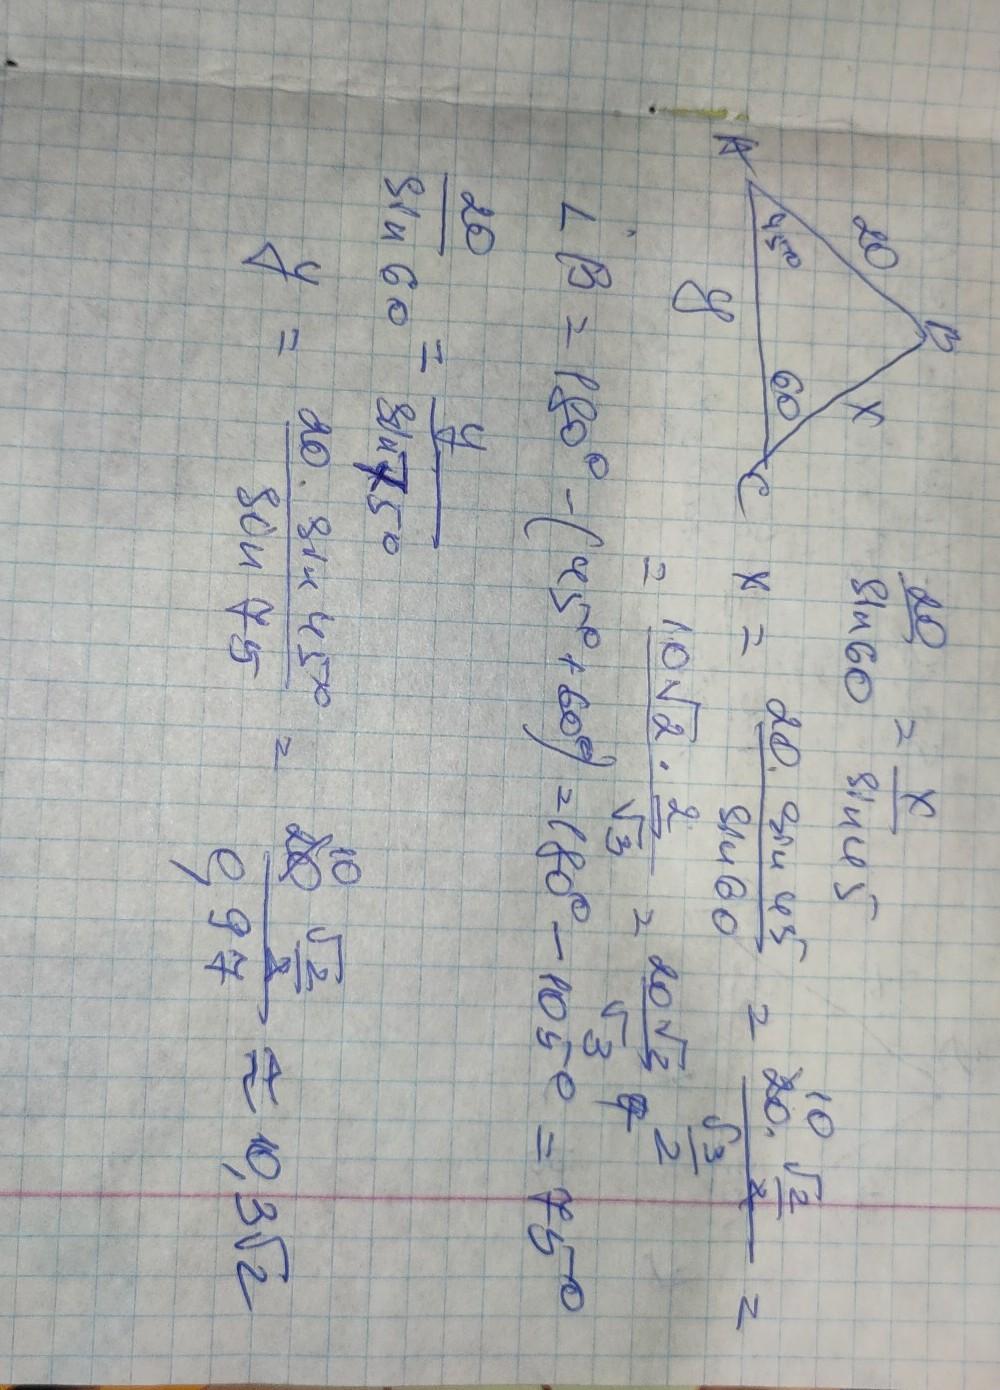 A
45°
20
B
x
60
C
y
20/sin 60 = x/sin 45
x = 20 · sin 45/sin 60 = 20 · 10 √2/2 / √3/2 =
= 10√2 · 2/√3 = 20√2/√3
∠B = 180° - (45° + 60°) = 180° - 105° = 75°
20/sin 60 = y/sin 75°
y = 20 · sin 45°/sin 75 = 20 10 √2/2 / 0,97 ≈ 10,3√2